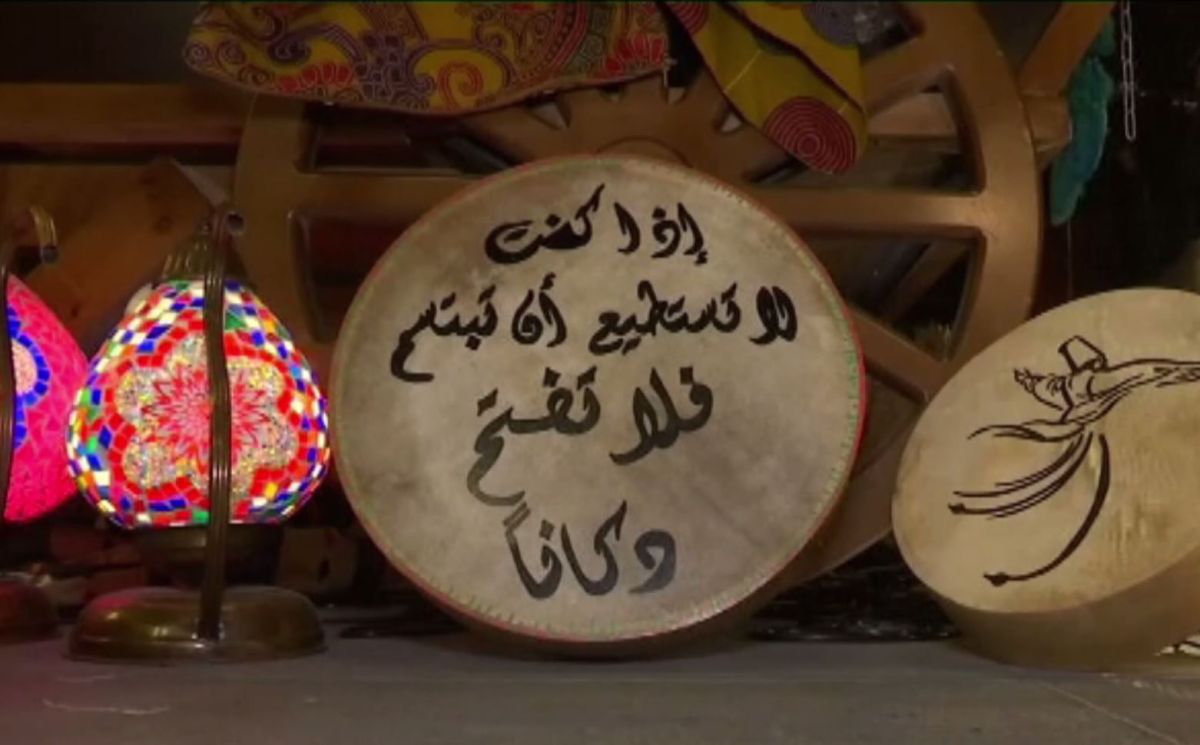 إذا كنت
لا تستطيع أن تبتسم
فلا تفتح
دكاناً